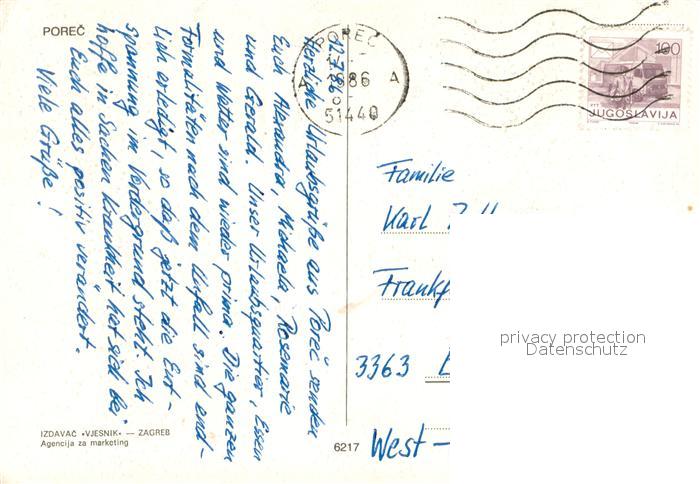 POREČ
12.7.86
Herzliche Urlaubsgrüße aus Poreč senden
Euch Alexandra, Michaela, Rosemarie
und Gerald. Unser Urlaubsquartier, Essen
und Wetter sind wieder prima. Die ganzen
Formalitäten nach dem Unfall sind end-
lich erledigt, so daß jetzt die Ent-
spannung im Vordergrund steht. Ich
hoffe in Sachen Krankheit hat sich bei
Euch alles positiv verändert.
Viele Grüße!
IZDAVAČ «VJESNIK» — ZAGREB
Agencija za marketing
6217
POREČ
A 1986 A
51440
100
PTT
JUGOSLAVIJA
Familie
Karl
3363
West-
privacy protection
Datenschutz